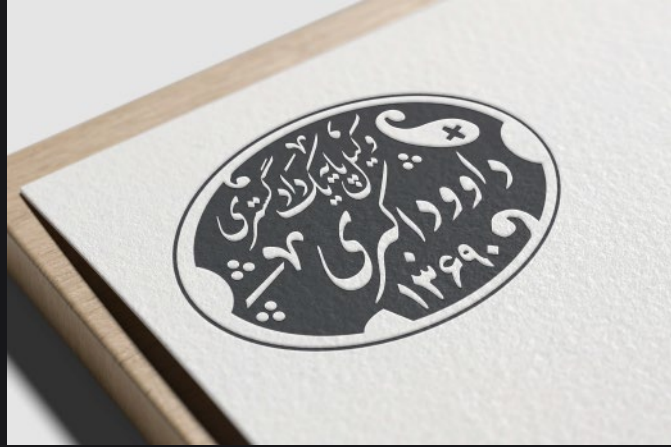 وکیل پایه یک دادگستری
داوود
۱۳۶۹۰